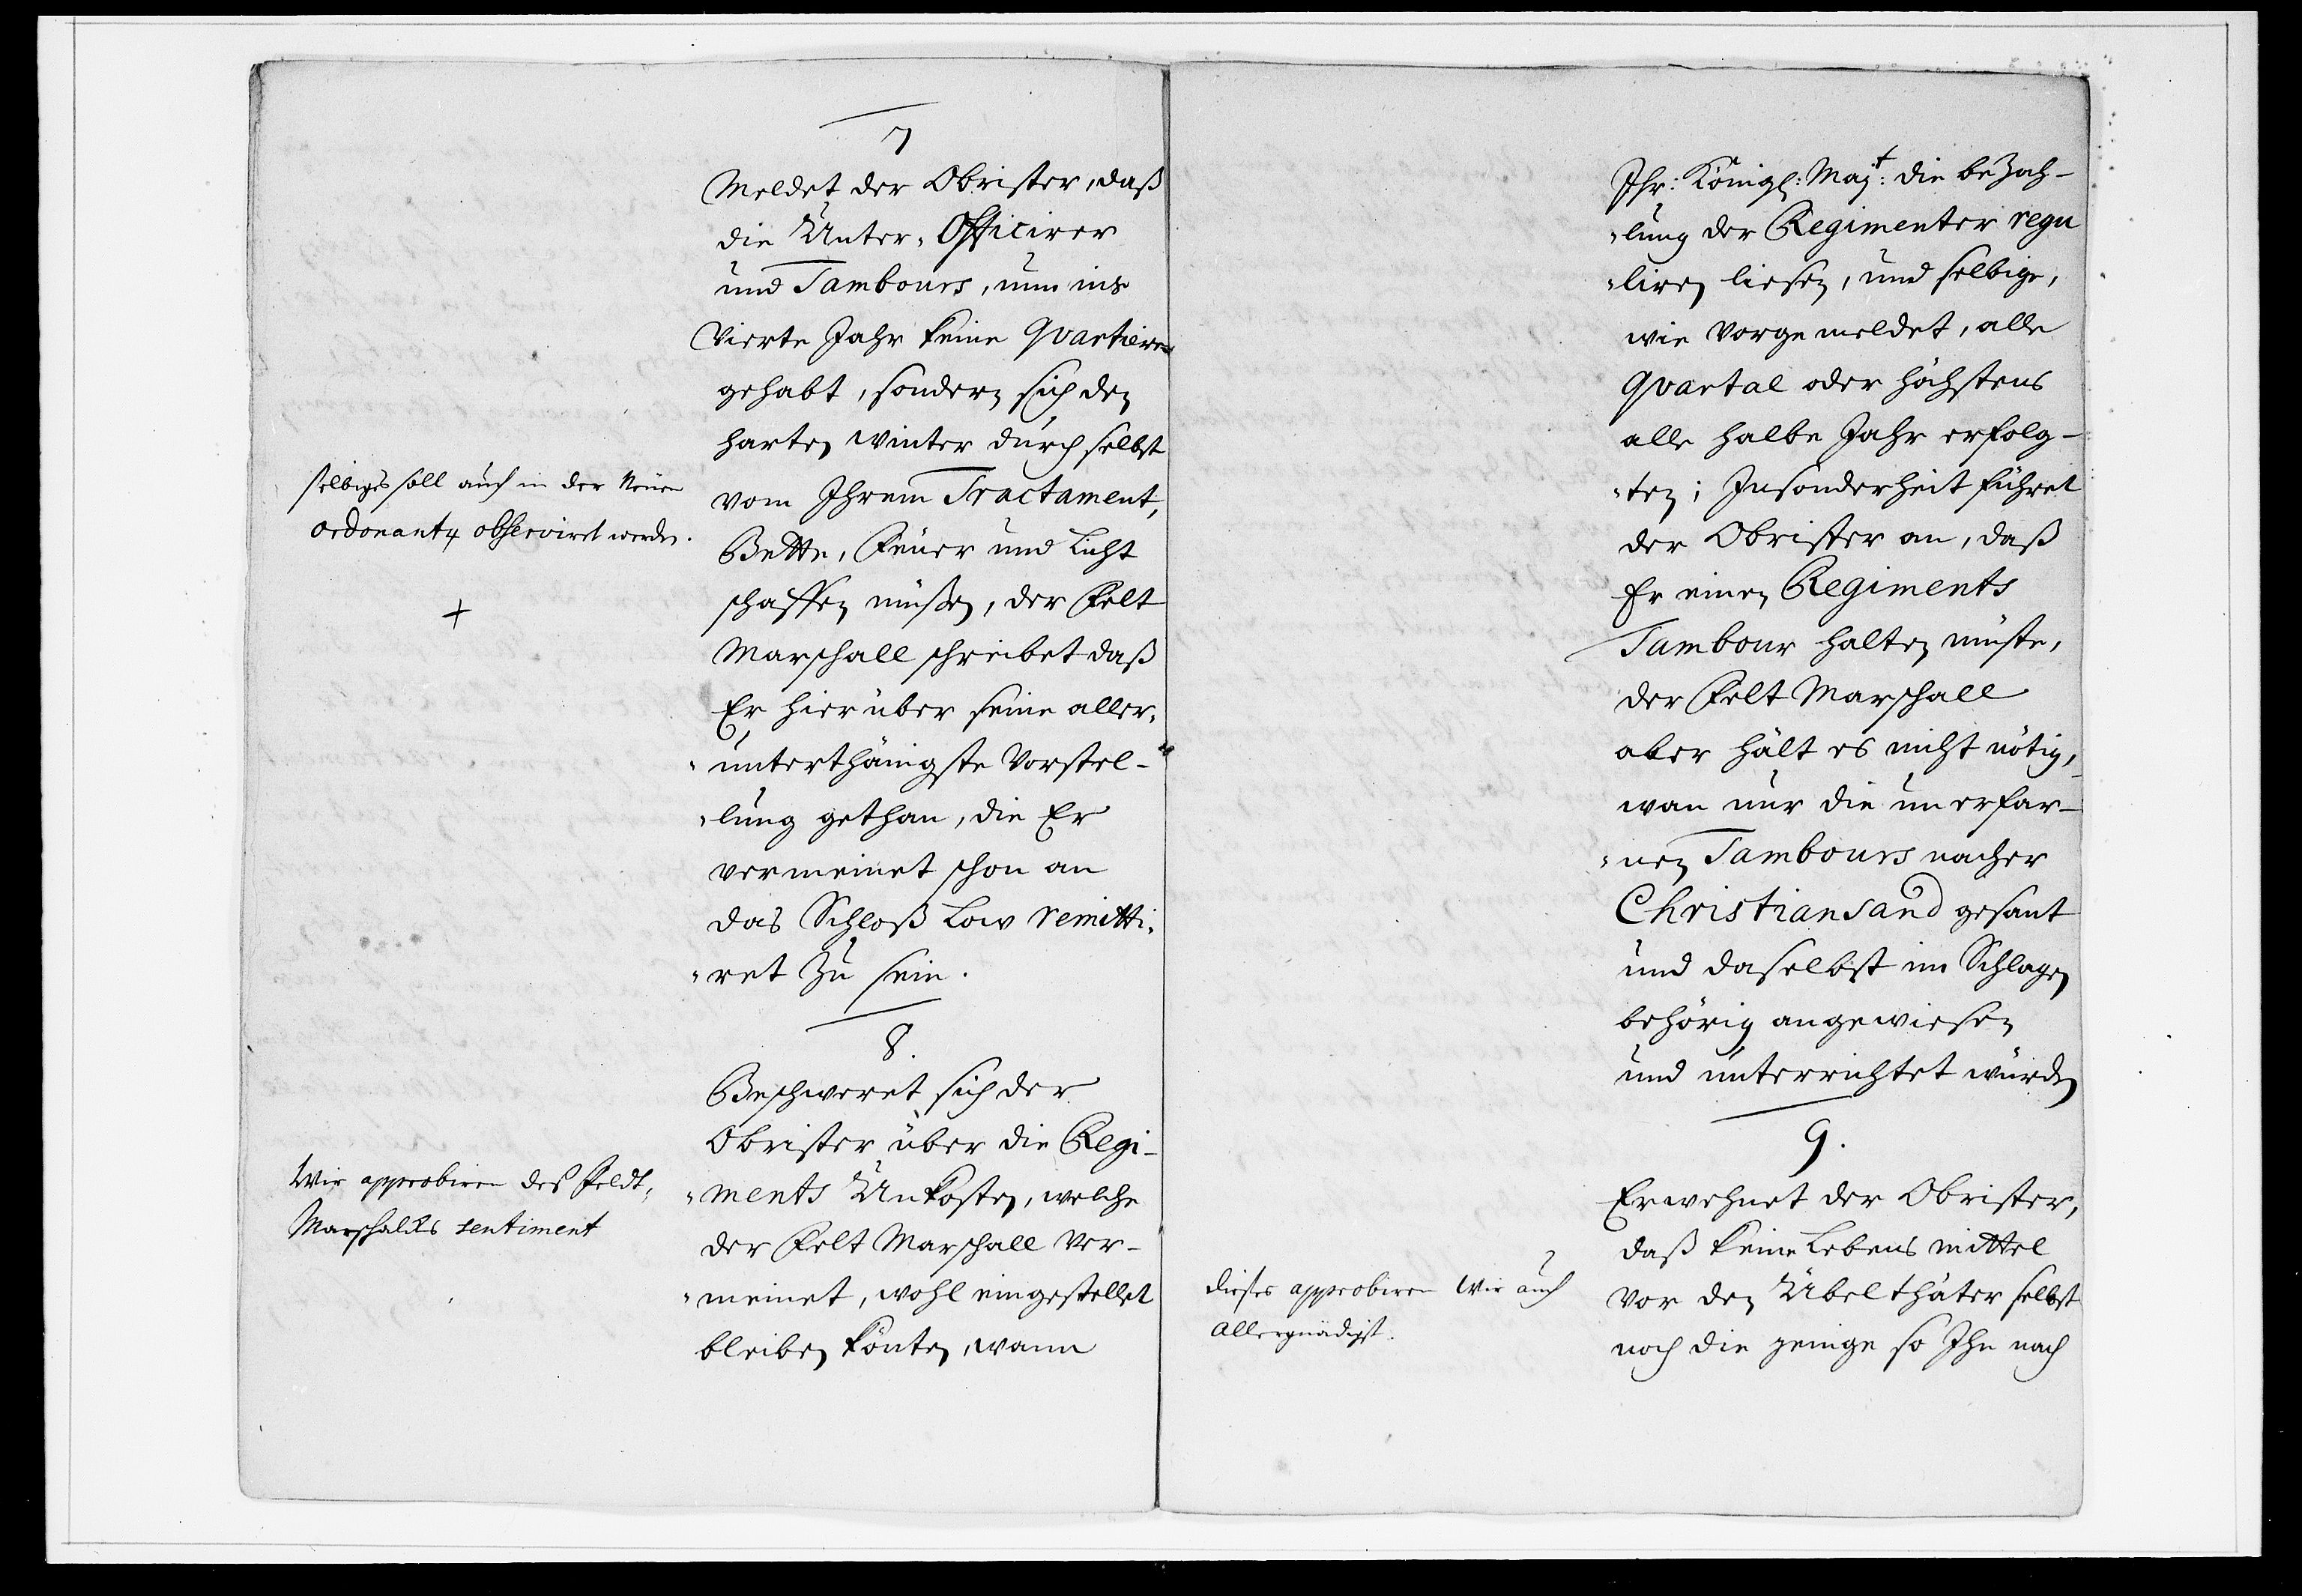 7
Meldet der Obrister, daß
die Unter-Officirer
und Tambours, nun ins
Vierte Jahr keine Quartiere
gehabt, sondern sich den
harten winter durch selbst
vom Ihrem Tractament,
Bette, Feuer und Licht
schaffen müßen, der Felt
Marschall schreibet daß
Er hierüber seine aller-
unterthänigste Vorstel-
lung gethan, die Er
vermeinet schon an
das Schloß Low remitti-
ret zu sein.
selbiges soll auch in der Neuen
ordonantz observiret werden.
+
8.
Beschweret sich der
Obrister über die Regi-
ments Unkosten, welche
der Felt Marschall ver-
meinet, wohl eingestellet
bleiben könten, wann
Wir approbiren des Feldt-
Marschalks sentiment
Ihr: Königl: Majt: die bezah-
lung der Regimenter regu
liren liesen, und selbige,
wie vorgemeldet, alle
Quartal oder höchstens
alle halbe Jahr erfolg-
ten; Insonderheit führet
der Obrister an, daß
Er einen Regiments
Tambour halten müste,
der Felt Marschall
aber hält es nicht nötig,
wan nur die unerfar-
nen Tambours nacher
Christiansand gesant
und daselbst im Schlagen
behörig angewiesen
und unterrichtet würden
9.
Erwehnet der Obrister,
daß keine Lebens mittel
vor den Übelthäter selbst
noch die jenige so Ihn nach
dieses approbiren Wir auch
Allergnädigst.